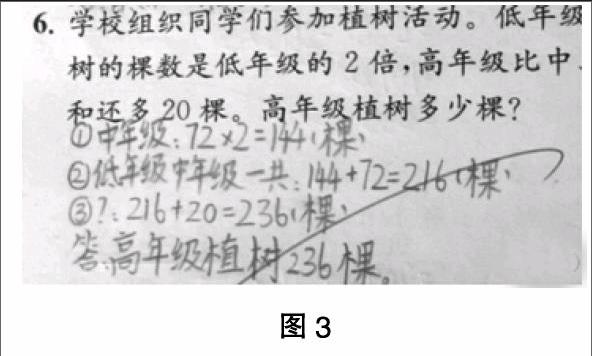 6. 学校组织同学们参加植树活动。低年级
树的棵数是低年级的 2 倍，高年级比中
和还多 20 棵。高年级植树多少棵？
①中年级：72×2=144（棵）
②低年级中年级一共：144+72=216（棵）
③？：216+20=236（棵）
答：高年级植树236棵。
图 3